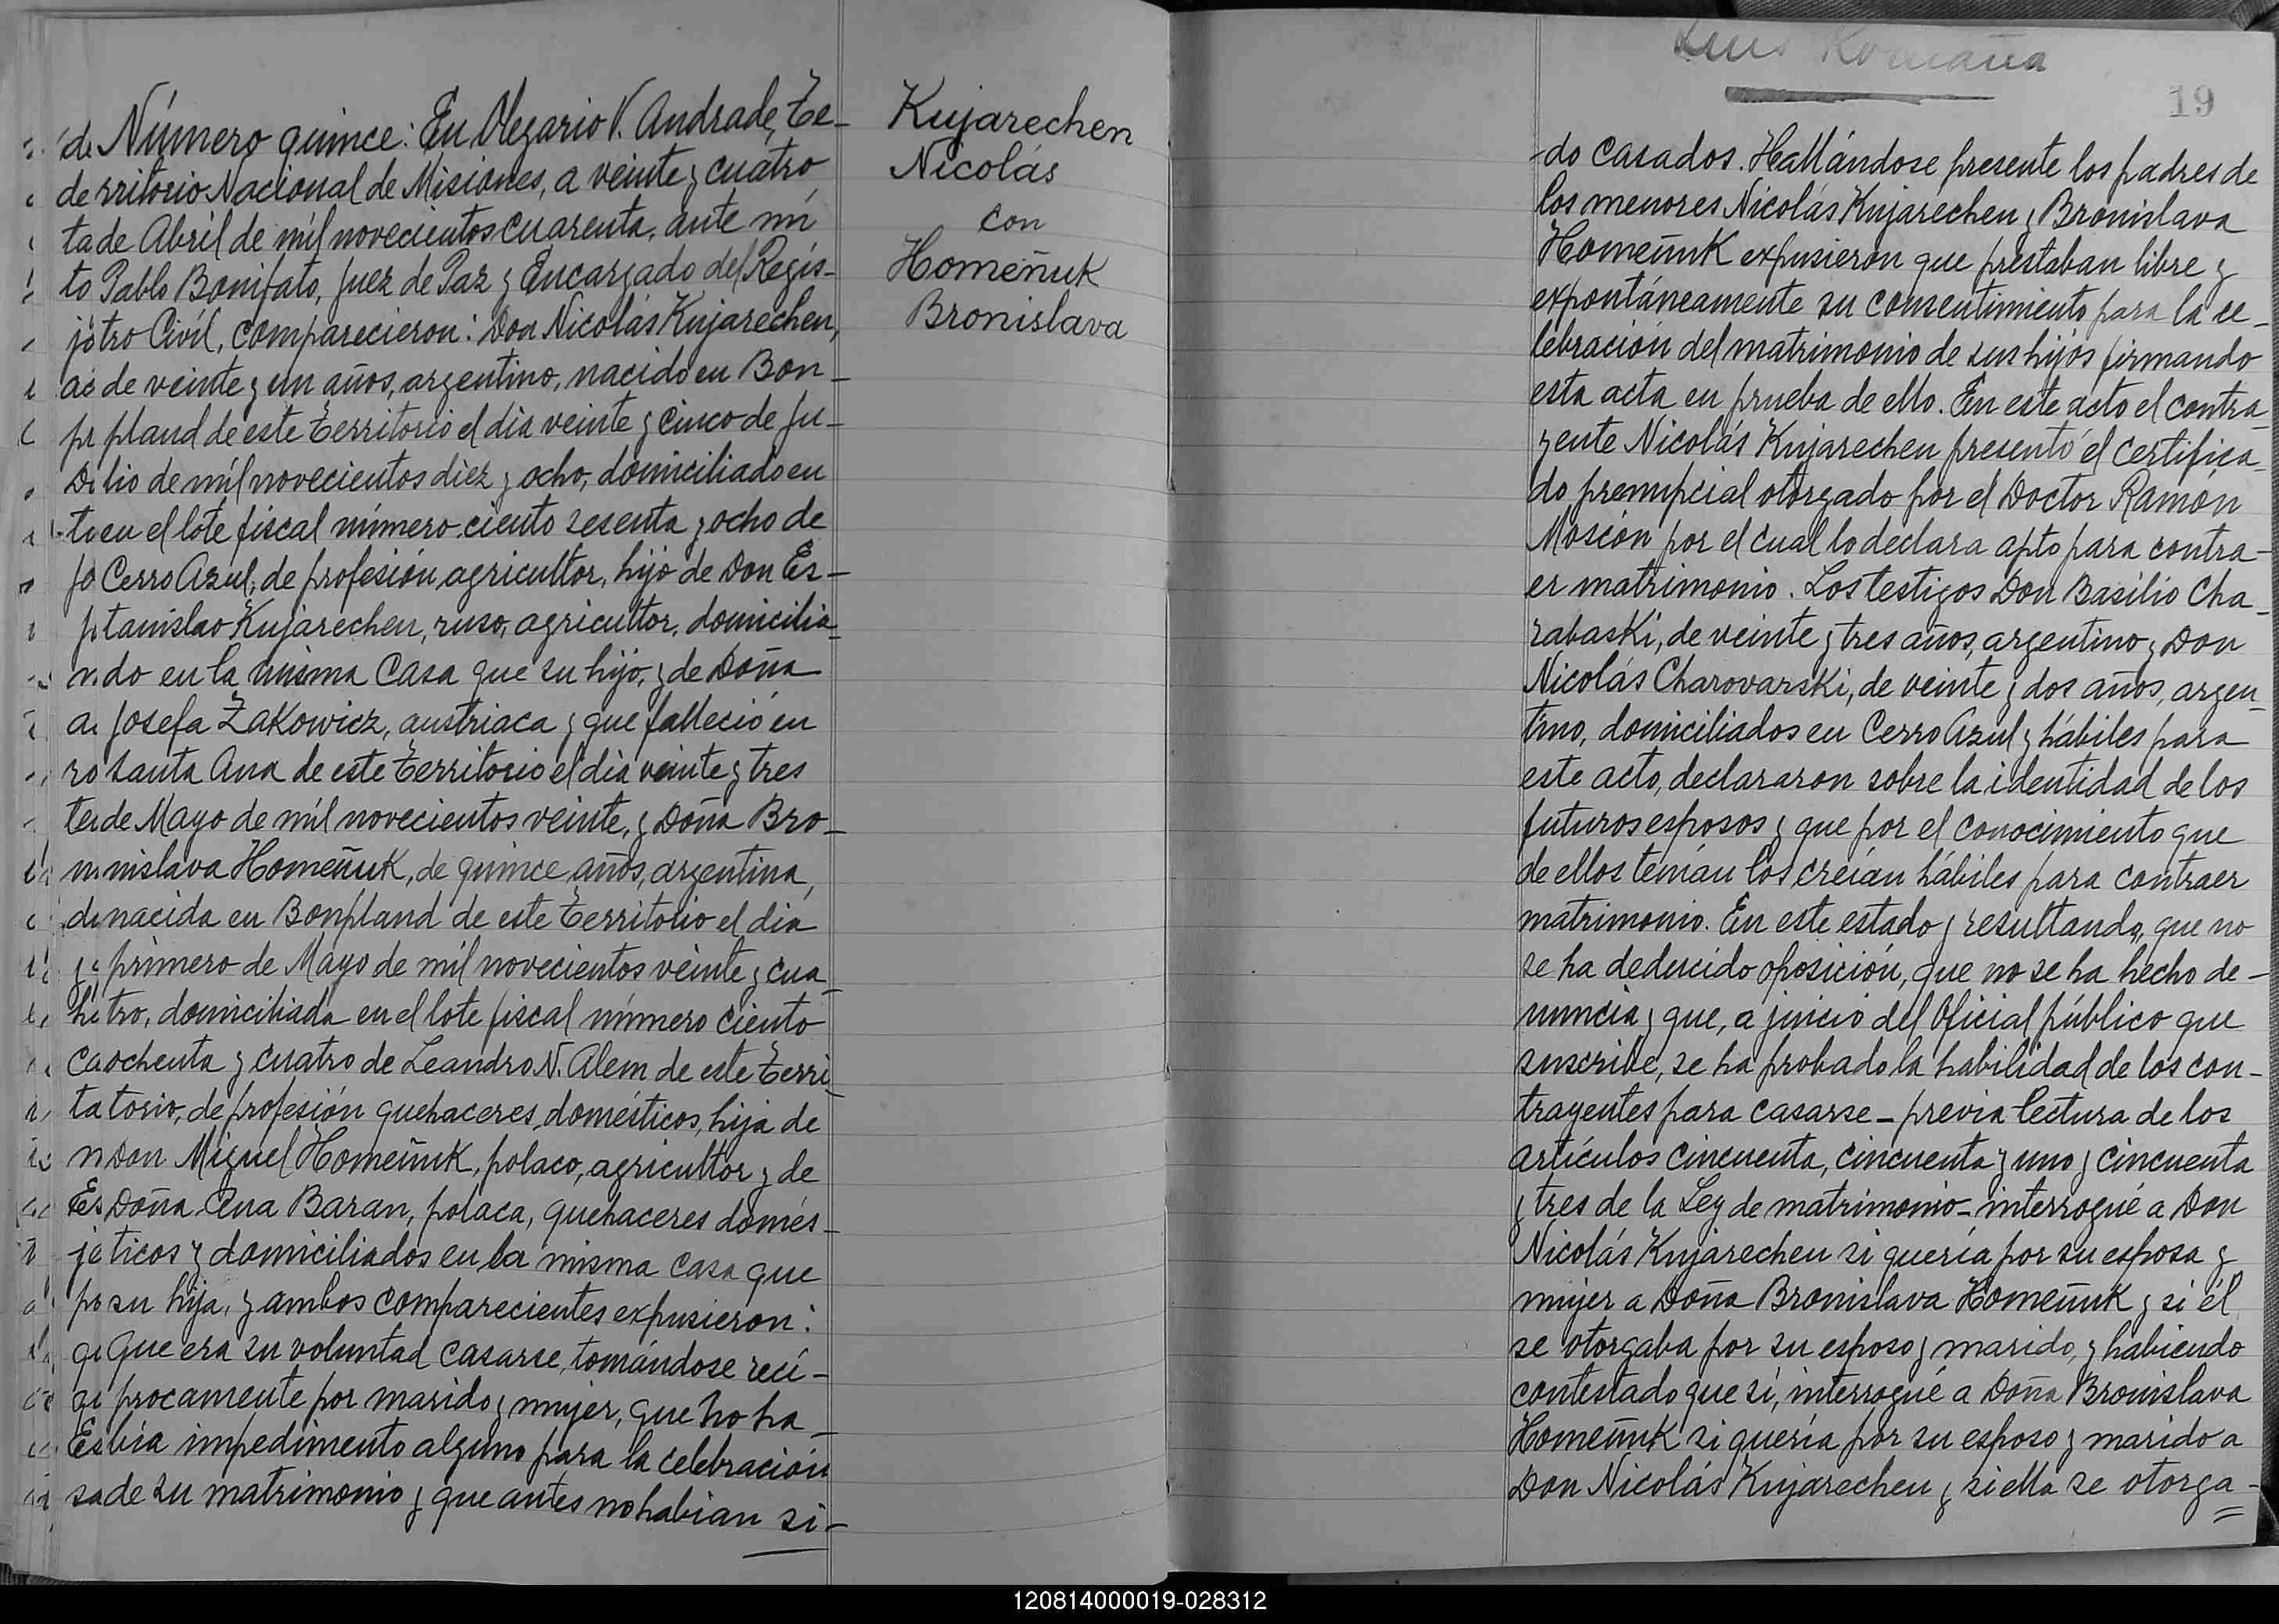 Número quince: En Olegario V. Andrade, Te-
rritorio Nacional de Misiones, a veinte y cuatro
de Abril de mil novecientos cuarenta, ante mi
Pablo Bonifato, Juez de Paz y Encargado del Regis-
tro Civil, comparecieron: Don Nicolás Kujarechen,
de veinte y un años, argentino, nacido en Bon-
pland de este Territorio el dia veinte y cinco de Ju-
lio de mil novecientos diez y ocho, domiciliado en
en el lote fiscal número ciento sesenta y ocho de
Cerro Azul, de profesión agricultor, hijo de Don Es-
tanislao Kujarechen, ruso, agricultor, domicilia-
do en la misma Casa que su hijo, y de Doña
Josefa Zakowicz, austriaca y que falleció en
Santa Ana de este Territorio el dia veinte y tres
de Mayo de mil novecientos veinte, y Doña Bro-
nislava Homeñuk, de quince años, argentina,
nacida en Bonpland de este Territorio el dia
primero de Mayo de mil novecientos veinte y cua-
tro, domiciliada en el lote fiscal número ciento
ochenta y cuatro de Leandro N. Alem de este Terri-
torio, de profesión quehaceres domésticos, hija de
Don Miguel Homeñuk, polaco, agricultor y de
Doña Ana Baran, polaca, quehaceres domés-
ticos y domiciliados en la misma casa que
su hija, y ambos comparecientes expusieron:
Que era su voluntad casarse, tomándose recí-
procamente por marido y mujer, que no ha-
bía impedimento alguno para la celebración
de su matrimonio y que antes no habian si-
Kujarechen
Nicolás
con
Homeñuk
Bronislava
Luis Romaña
19
-do casados. Hallándose presente los padres de
los menores Nicolás Kujarechen y Bronislava
Homeñuk expusieron que prestaban libre y
expontáneamente su consentimiento para la ce-
lebración del matrimonio de sus hijos firmando
esta acta en prueba de ello. En este acto el contra-
yente Nicolás Kujarechen presentó el certifica-
do prenupcial otorgado por el Doctor Ramón
Moscon por el cual lo declara apto para contra-
er matrimonio. Los testigos Don Basilio Cha-
rabaski, de veinte y tres años, argentino y Don
Nicolás Charovarski, de veinte y dos años, argen-
tino, domiciliados en Cerro Azul y hábiles para
este acto, declararon sobre la identidad de los
futuros esposos y que por el conocimiento que
de ellos tenían los creían hábiles para contraer
matrimonio. En este estado y resultando, que no
se ha deducido oposición, que no se ha hecho de-
nuncia y que, a juicio del Oficial público que
suscribe, se ha probado la habilidad de los con-
trayentes para casarse - previa lectura de los
artículos cincuenta, cincuenta y uno y cincuenta
y tres de la Ley de matrimonio - interrogué a Don
Nicolás Kujarechen si quería por su esposa y
mujer a Doña Bronislava Homeñuk y si él
se otorgaba por su esposo y marido, y habiendo
contestado que sí, interrogué a Doña Bronislava
Homeñuk si quería por su esposo y marido a
Don Nicolás Kujarechen y si ella se otorga-
120814000019-028312